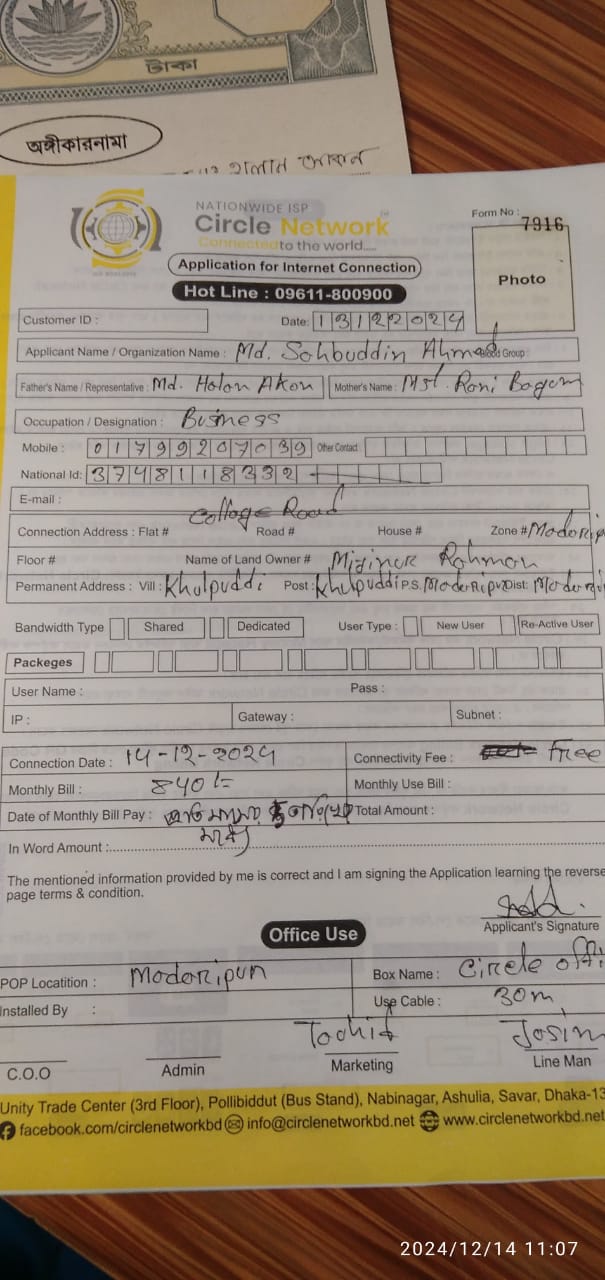 টাকা
অঙ্গীকারনামা
NATIONWIDE ISP
Circle Network
Connected to the world.....
Application for Internet Connection
Hot Line : 09611-800900
Form No : 7916
Photo
Customer ID :
Date: 13122024
Applicant Name / Organization Name : Md. Sohbuddin Ahmad Blood Group :
Father's Name / Representative : Md. Holon Akon Mother's Name : Mst. Roni Bagom
Occupation / Designation : Business
Mobile : 01799207039 Other Contact :
National Id: 3748118332
E-mail :
College Road
Connection Address : Flat # Road # House # Zone # Modorip
Floor # Name of Land Owner # Mizinur Rohman
Permanent Address : Vill : Khulpuddi Post : Khulpuddi P.S. Moderipur Dist:
Bandwidth Type Shared Dedicated User Type : New User Re-Active User
Packeges
User Name : Pass :
IP : Gateway : Subnet :
Connection Date : 14-12-2024 Connectivity Fee : Free
Monthly Bill : 840/= Monthly Use Bill :
Date of Monthly Bill Pay : Total Amount :
মধ্যে
In Word Amount :
The mentioned information provided by me is correct and I am signing the Application learning the reverse
page terms & condition.
Applicant's Signature
Office Use
POP Locatition : Modoripur Box Name : Circle offi
Installed By : Use Cable : 30m
Tochif Josim
C.O.O Admin Marketing Line Man
Unity Trade Center (3rd Floor), Pollibiddut (Bus Stand), Nabinagar, Ashulia, Savar, Dhaka-13
facebook.com/circlenetworkbd info@circlenetworkbd.net www.circlenetworkbd.net
2024/12/14 11:07